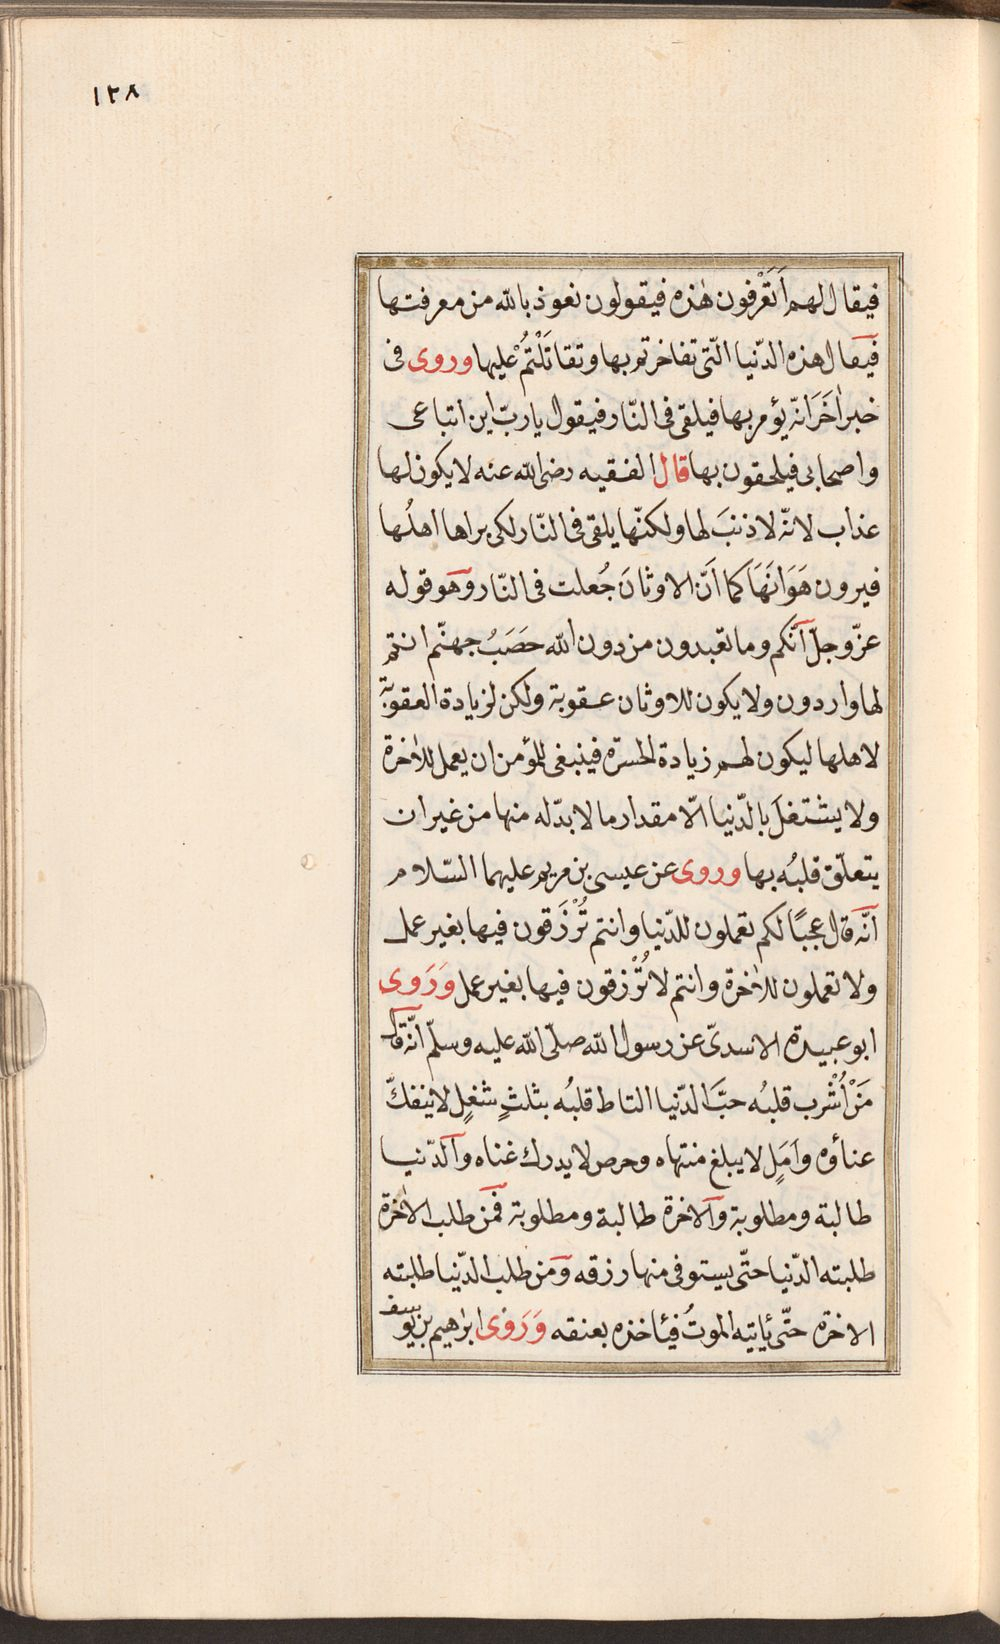 ١٢٨
فيقال لهم اَتَعْرفون هٰذه فيقولون نعوذ بالله من معرفتها
فيقال هذه الدّنيا الّتى تفاخرتم بها وتقاتَلْتُمْ عليها وروى فى
خبر اٰخَرَ انّه يؤمر بها فيلقى فى النّار فيقول يا ربّ اين اتباعى
واصحابى فيلحقون بها قال الفقيه رضى الله عنه لا يكون لها
عذاب لانّه لا ذنبَ لها ولكنّها يلقى فى النّار لكى يراها اهلُها
فيرون هَوَانَهَا كما اَنّ الاوثانَ جُعلت فى النّار وهو قوله
عزّ وجلّ انّكم وما تعّبدون من دون الله حَصَبُ جهنّم انتم
لها واردون ولا يكون للاوثان عقوبة ولكن لزيادة العقوبة
لاهلها ليكون لهم زيادة الحسرة فينبغى للمؤمن ان يعمل للاٰخرة
ولا يشتغلَ بالدّنيا الّا مقدار ما لا بدّ له منها من غير ان
يتعلّق قلبُه بها وروى عن عيسى بن مريم عليهما السّلام
انّه قال عجبًا لكم تعملون للدّنيا وانتم تُرْزَقون فيها بغير عمل
ولا تعملون للاٰخرة وانتم لا تُرْزقون فيها بغير عمل وَرَوى
ابو عبيدة الاسدىّ عن رسول الله صلّى الله عليه وسلّم انّه قال
مَنْ اُشْرب قلبُه حبَّ الدّنيا التاط قلبُه بثلثٍ شغلٍ لا ينفكّ
عناؤه واَمَلٍ لا يبلغ منتهاه وحرص لا يدرك غناه والدّنيا
طالبة ومطلوبة والاخرة طالبة ومطلوبة فمَن طلب الاٰخرة
طلبته الدّنيا حتّى يستوفى منها رزقه ومن طلب الدّنيا طلبته
الاخرة حتّى ياتيه الموتُ فيأخذه بعنقه وَرَوٰى ابرٰهيم بن يوسف